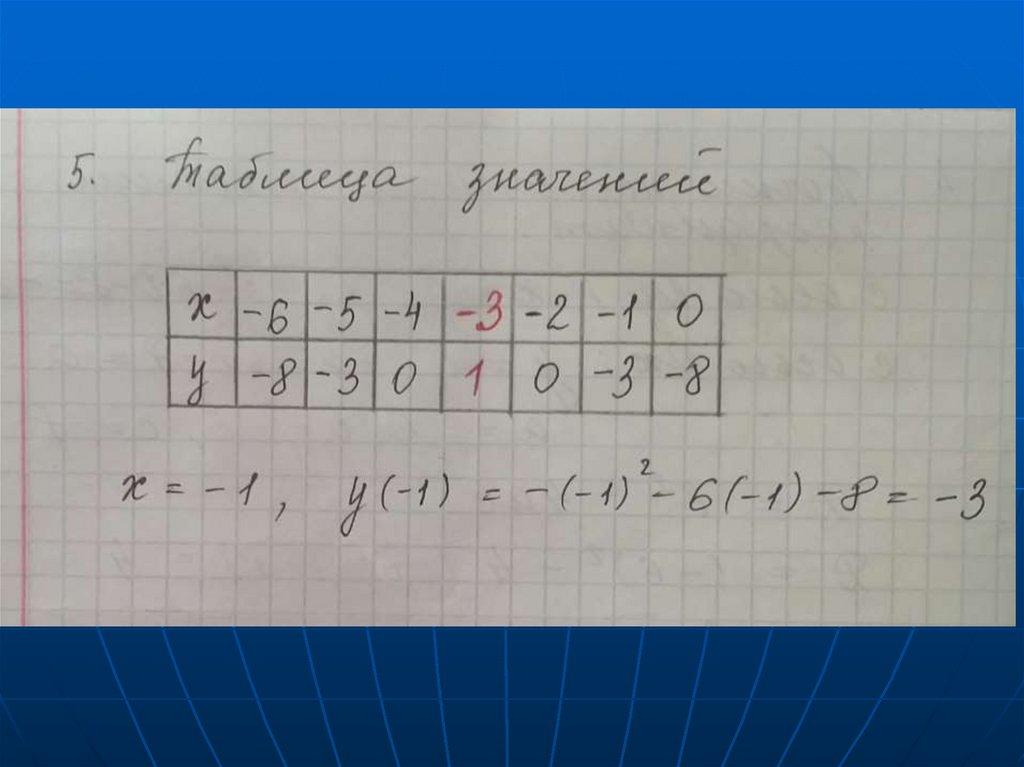 5. Таблица значений
x -6 -5 -4 -3 -2 -1 0
y -8 -3 0 1 0 -3 -8
x = -1, y(-1) = -(-1)² - 6(-1) - 8 = -3